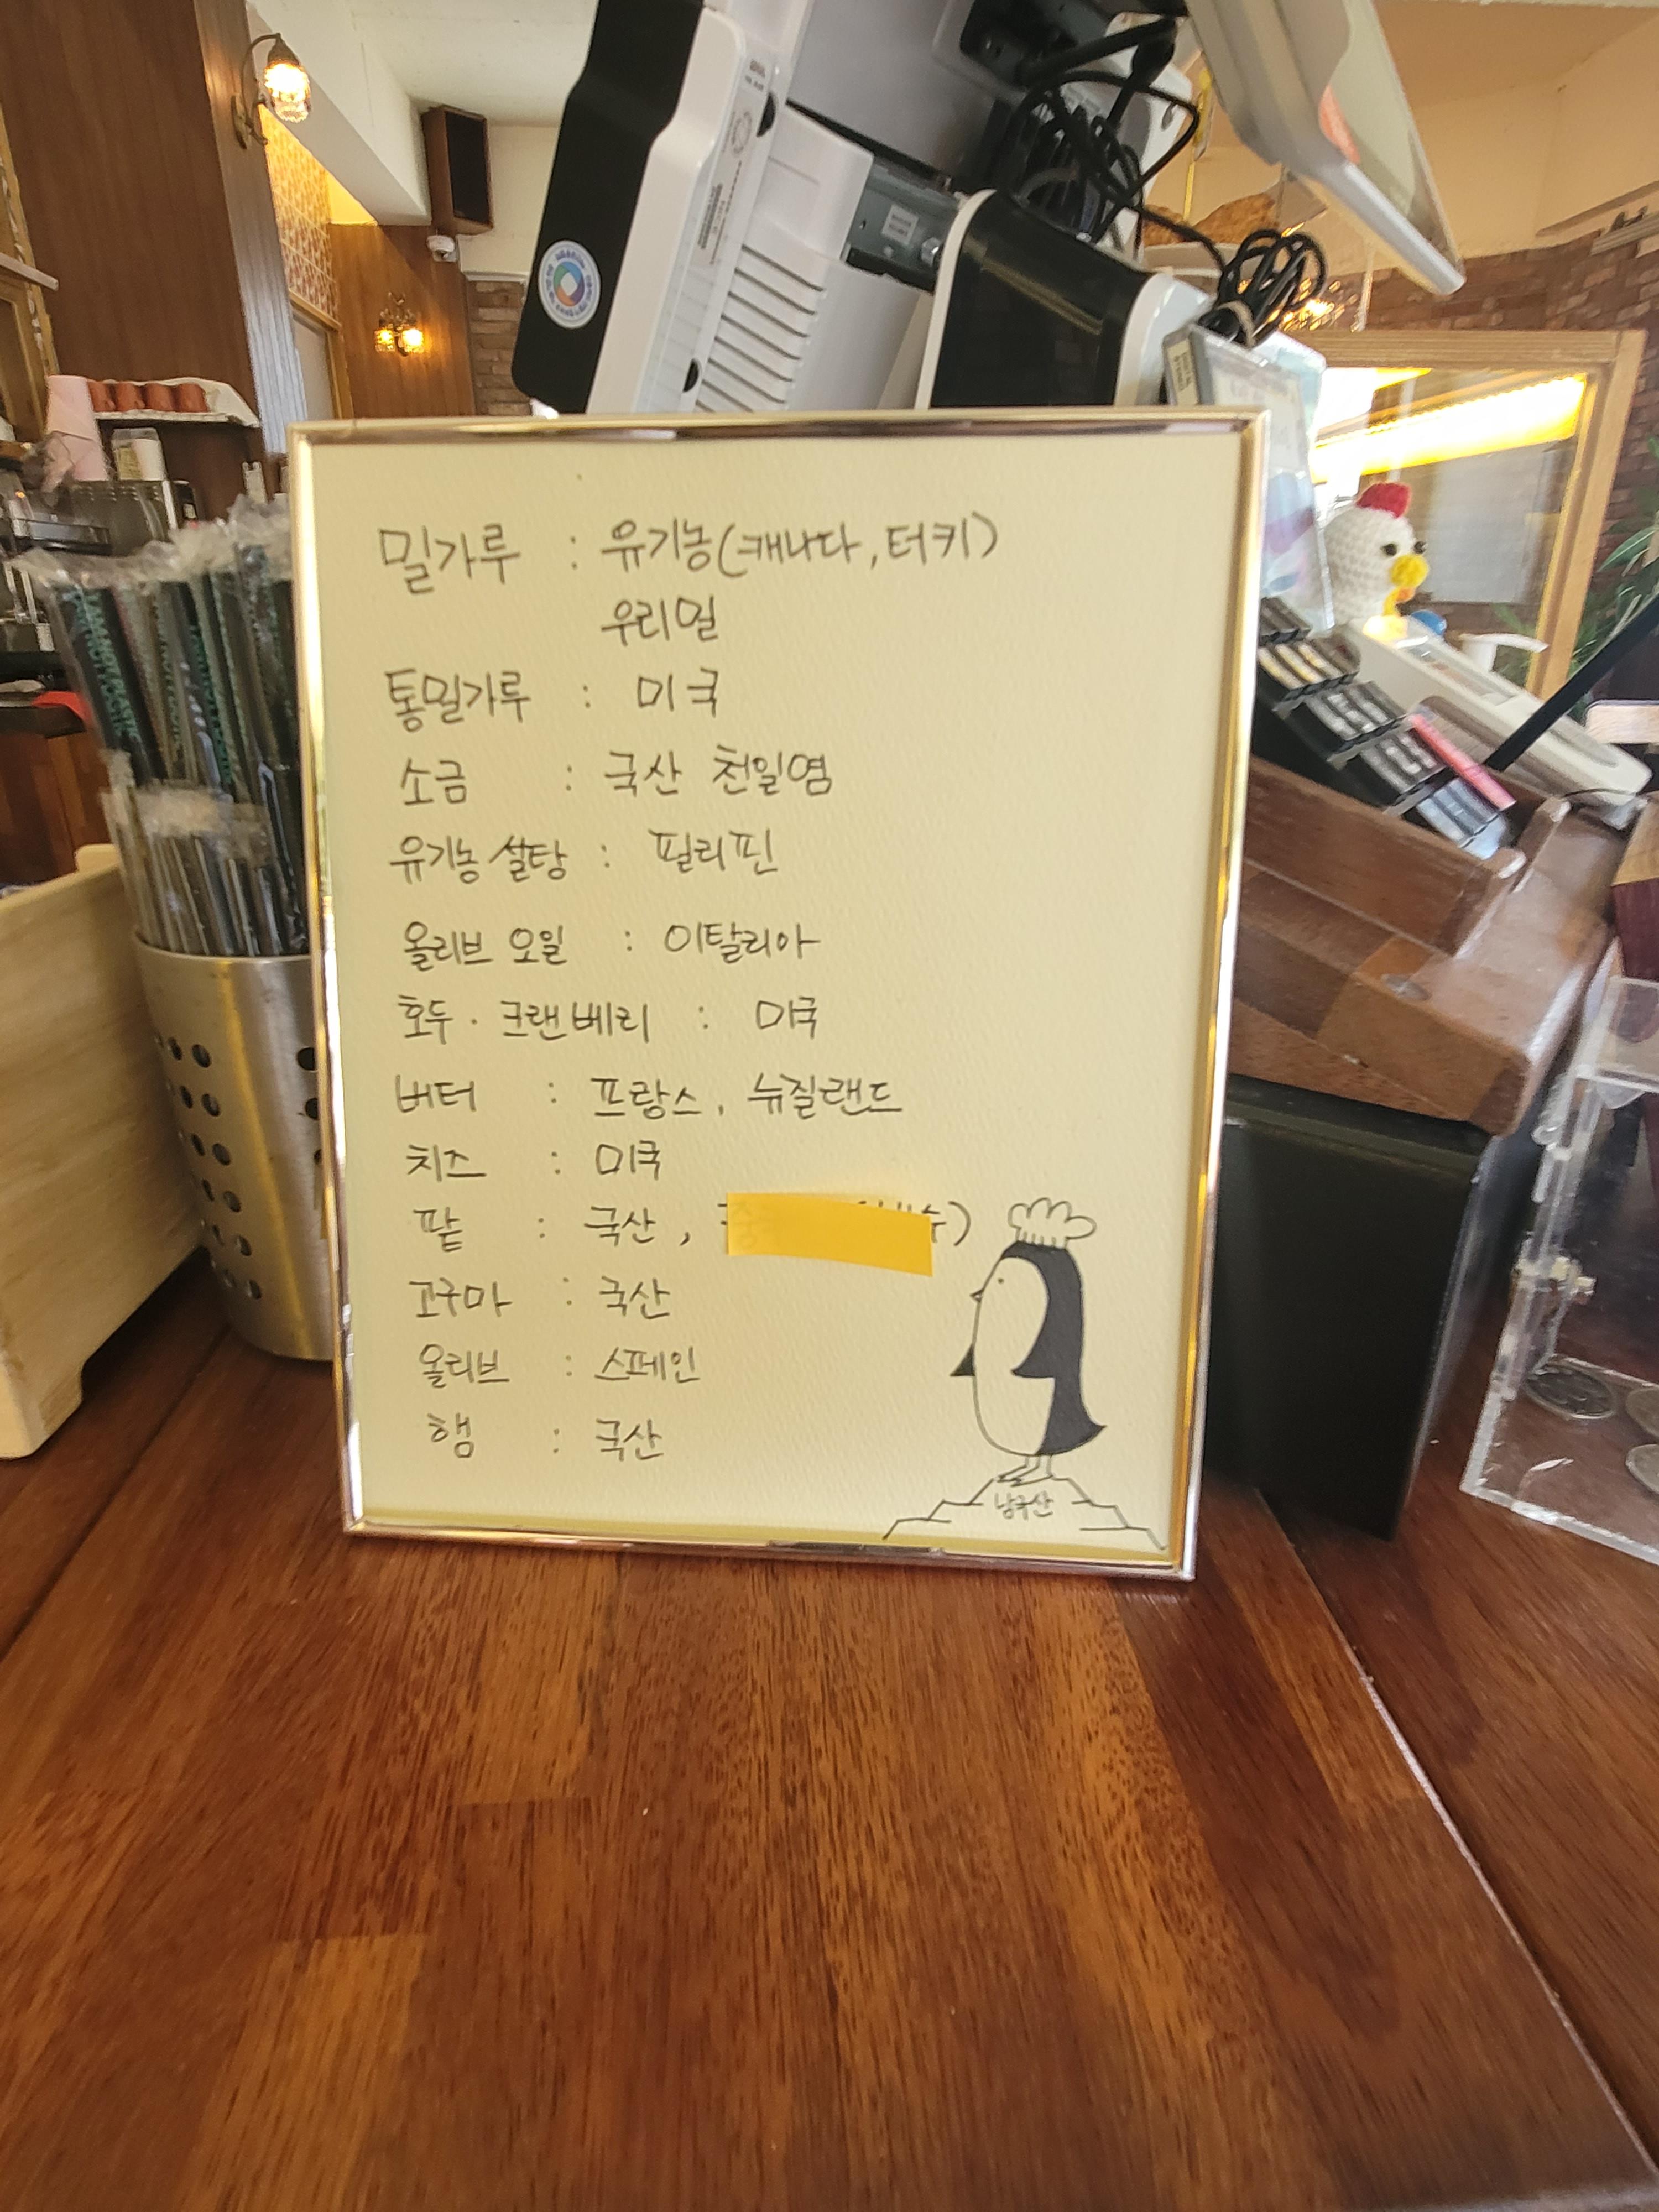 밀가루 : 유기농(캐나다, 터키)
우리밀
통밀가루 : 미국
소금 : 국산 천일염
유기농 설탕 : 필리핀
올리브 오일 : 이탈리아
호두 · 크랜베리 : 미국
버터 : 프랑스, 뉴질랜드
치즈 : 미국
팥 : 국산,
고구마 : 국산
올리브 : 스페인
햄 : 국산
남극산